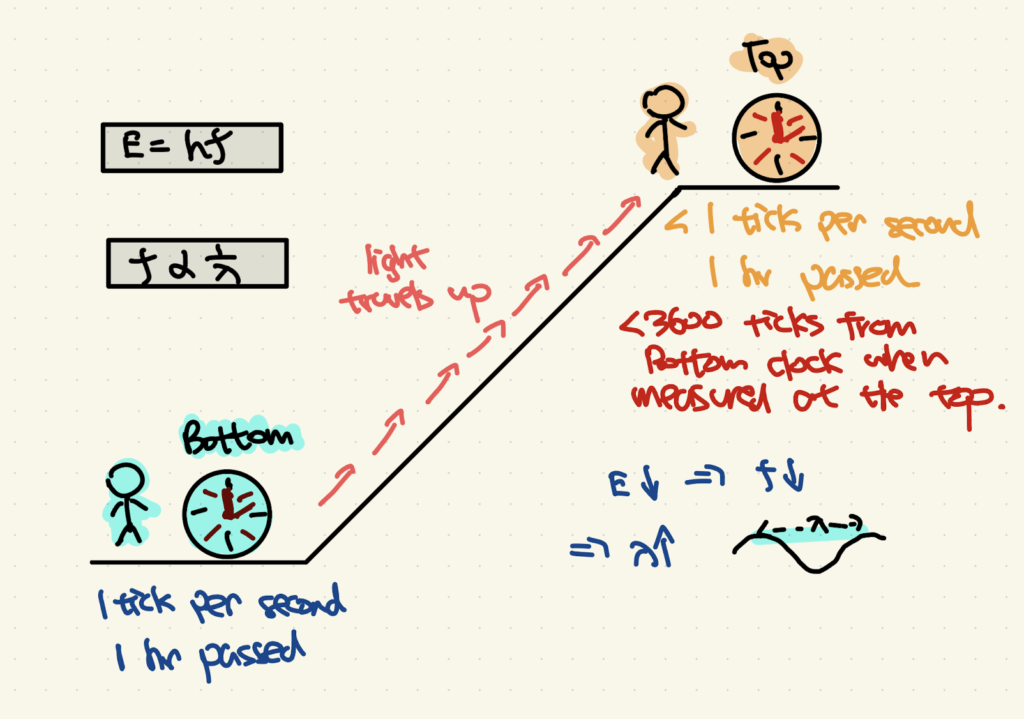 Top
E = hf
f α 1/λ
light
travels up
< 1 tick per second
1 hr passed
<3600 ticks from
Bottom clock when
measured at the top.
Bottom
E↓ => f↓
=> λ↑
λ
1 tick per second
1 hr passed